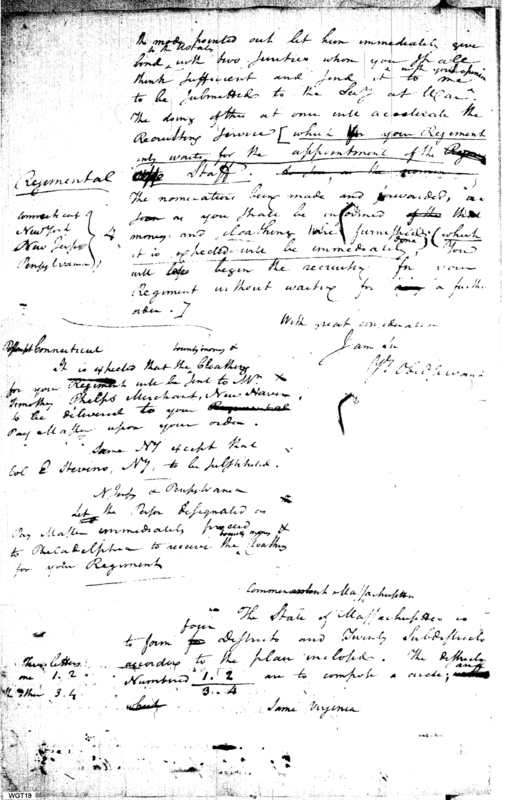 the mode pointed out let him immediately give
to the United States
bond with two sureties whom you shall
with your opinion
think sufficient and send it to me
to be submitted to the Secy at War
The doing of this at once will accelerate the
Recruiting Service [which for your Regiment
only waits for the appointment of the
Regimental
Staff.
The nominations being made and forwarded, as
soon as you shall be informed that
Connecticut
New York
New Jersey
Pensylvania
money and cloathing are furnished (which
it is expected will be immediately done) You
will begin the recruiting for your
Regiment without waiting for a further
order.]
With great consideration
I am &c
Connecticut
bounty money &
It is expected that the Cloathing
for your Regiment will be sent to Mr.
Timothy Phelps Merchant, New Haven,
to be delivered to your Regimental
Pay Master upon your order.
Same NY except that
Col E Stevens, NY, to be substituted.
N Jersey & Pensylvania
Let the Person designated as
Pay Master immediately proceed
bounty money &
to Philadelphia to receive the Cloathing
for your Regiment
Commandant Massachusettes
The State of Massachusettes is
four
to form Districts and Twenty Subdistricts
according to the plan inclosed. The districts
Three letters
one 1. 2
the other 3. 4
Numbered 1. 2
3. 4
are to compose a circle, and
which
Same Virginia
WGT19